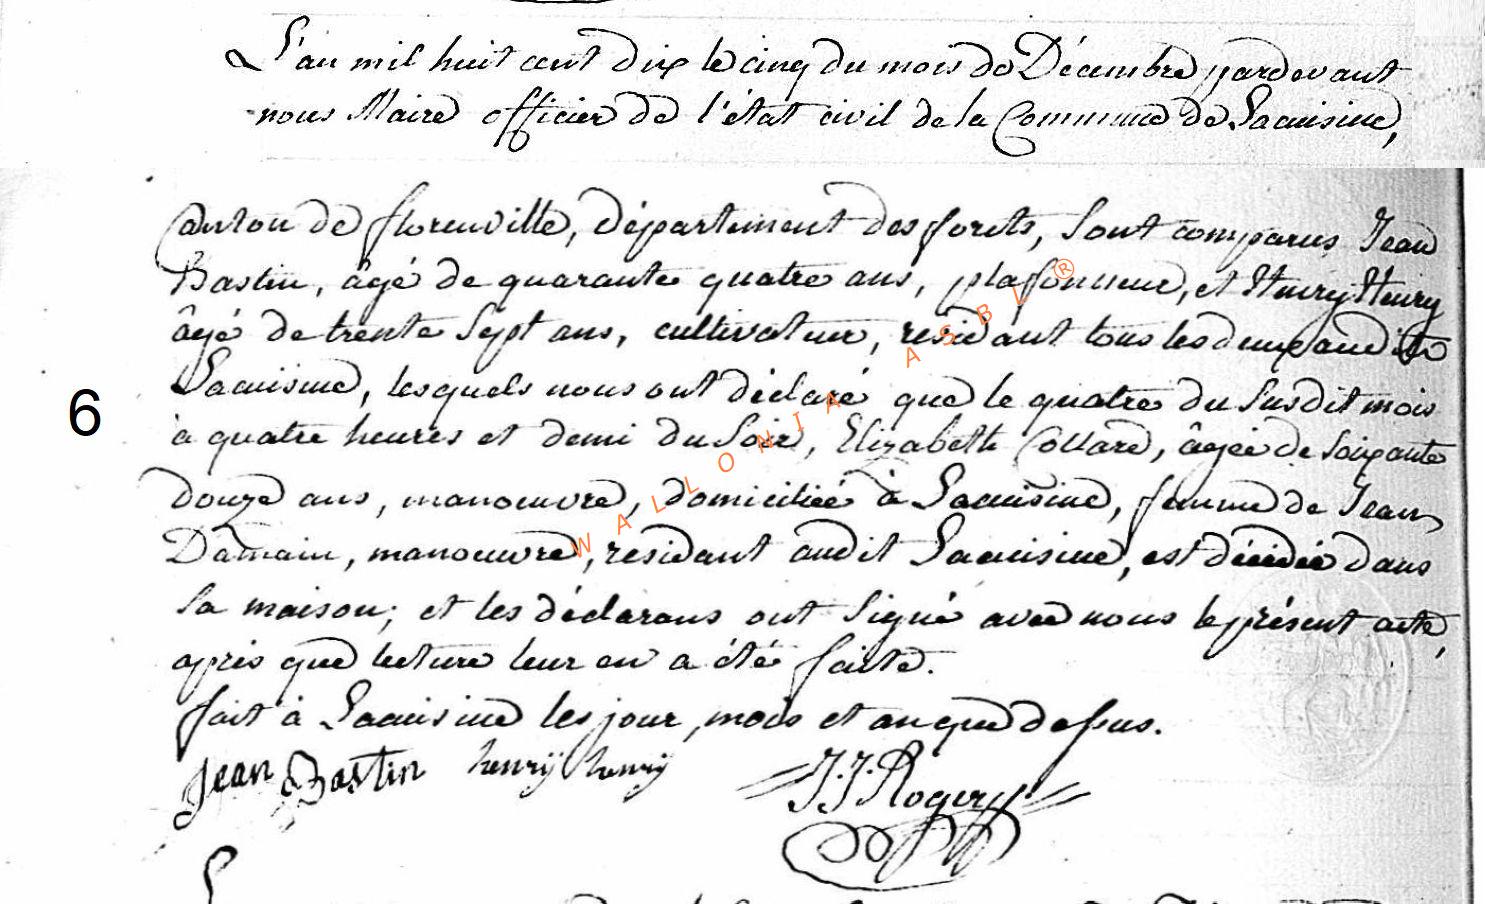 L'an mil huit cent dix le cinq du mois de Décembre pardevant
nous Maire officier de l'état civil de la Commune de Lacuisine,
Canton de florenville, département des forêts, sont comparus Jean
Bastin, âgé de quarante quatre ans, plafonneur, et Henry Henry
âgé de trente sept ans, cultivateur, residant tous les deux audit
Lacuisine, lesquels nous ont déclaré que le quatre du susdit mois
à quatre heures et demi du soir, Elizabeth Collard, âgée de soixante
6
douze ans, manoeuvre, domiciliée à Lacuisine, femme de Jean
Damain, manoeuvre, residant audit Lacuisine, est décédée dans
sa maison; et les déclarans ont signé avec nous le présent acte,
après que lecture leur en a été faite.
fait à Lacuisine les jour, mois et an que dessus.
Jean Bastin henrÿ henrÿ J. J. Rogery
WALLONIA ASBL ®